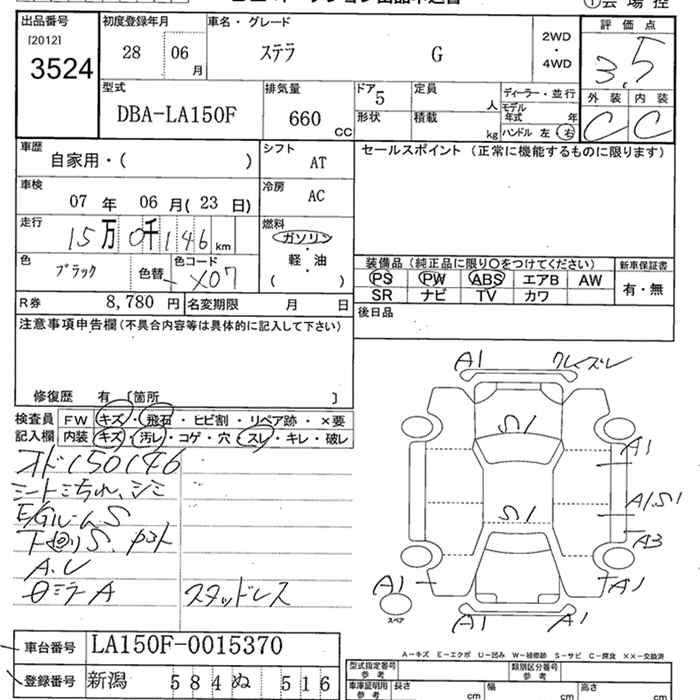 出品番号
[2012]
3524
初度登録年月
28 06 月
車名・グレード
ステラ G
2WD
・
4WD
評価点
3.5
外装 内装
C C
型式
DBA-LA150F
排気量
660 CC
ドア 5
形状
定員 人
積載 kg
ディーラー・並行
モデル年式 年
ハンドル 左 右
車歴
自家用・( )
シフト
AT
セールスポイント (正常に機能するものに限ります)
車検
07 年 06 月( 23 日)
冷房
AC
走行
15万0千146 km
燃料
ガソリン
軽・油
( )
色
ブラック
色替
色コード
X07
装備品 (純正品に限り〇をつけてください)
新車保証書
PS PW ABS エアB AW
SR ナビ TV カワ
有・無
R券 8,780 円
名変期限 月 日
後日品
注意事項申告欄(不具合内容等は具体的に記入して下さい)
修復歴 有 [箇所 ]
検査員
記入欄
FW キズ・飛石・ヒビ割・リペア跡・×要
内装 キズ・汚レ・コゲ・穴・スレ・キレ・破レ
オド150146
シートシミ
E/Gルーム S
下回り S
A.U
A スタッドレス
A1
S1
A1
S1
A1.S1
A3
A1
A1
A1
A1
スペア
A-キズ E-エクボ U-凹み W-補修跡 S-サビ C-腐食 XX-交換済
車台番号 LA150F-0015370
登録番号 新潟 584 ぬ 516
型式指定番号 参考
類別区分番号 参考
車庫証明用 参考
長さ cm
幅 cm
高さ cm